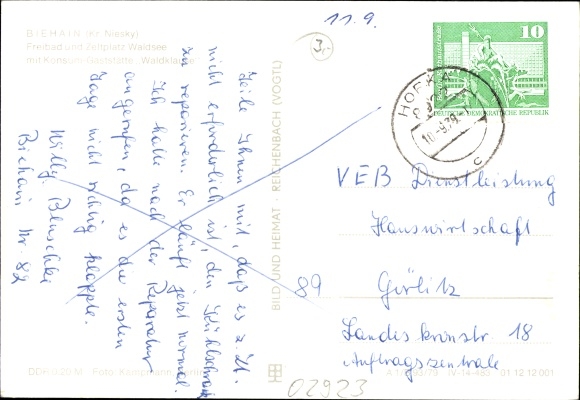 BIEHAIN (Kr. Niesky)
Freibad und Zeltplatz Waldsee
mit Konsum-Gaststätte "Waldklause"
11.9.
3,-
10
DEUTSCHE DEMOKRATISCHE REPUBLIK
HORKA
10.-9.79.
c
Teile Ihnen mit, daß es z. Zt.
nicht erforderlich ist, den Kühlschrank
zu reparieren. Er läuft jetzt normal.
Ich habe nach der Reparatur
angerufen, da es die ersten
Tage nicht richtig klappte.
Willy
Biehain Nr. 82
BILD UND HEIMAT · REICHENBACH (VOGTL)
VEB Dienstleistung
Hauswirtschaft
89 Görlitz
Landiskronstr. 18
Auftragszentrale
DDR 0,20 M Foto: Berlin
IV-14-483 01 12 12 001
02923